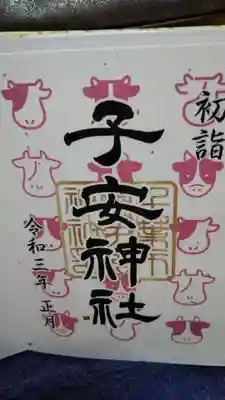 初詣
子安神社
令和三年 正月